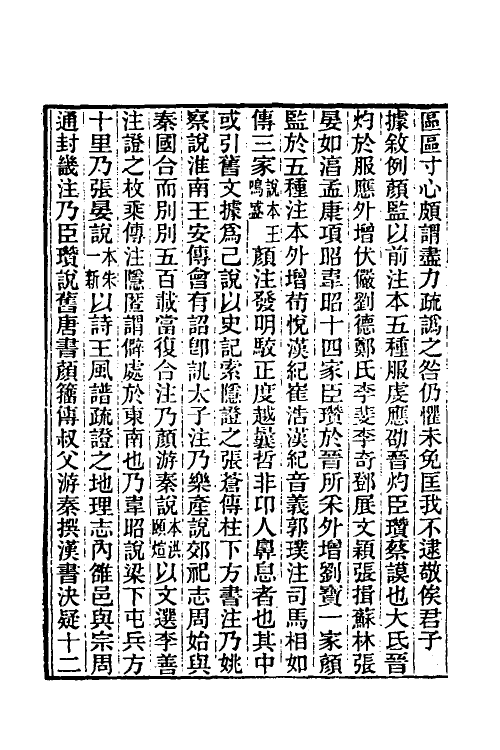 區區寸心頗謂盡力疏譌之咎仍懼未免匡我不逮敬俟君子
據敘例顏監以前注本五種服虔應劭晉灼臣瓚蔡謨也大氐晉
灼於服應外增伏儼劉德鄭氏李斐李奇鄧展文穎張揖蘇林張
晏如淳孟康項昭韋昭十四家臣瓚於晉所采外增劉寶一家顏
監於五種注本外增荀悅漢紀崔浩漢紀音義郭璞注司馬相如
傳三家說本王鳴盛顏注發明駮正度越曩哲非卬人鼻息者也其中
或引舊文據爲己說以史記索隱證之張蒼傳柱下方書注乃姚
察說淮南王安傳會有詔卽訊太子注乃樂產說郊祀志周始與
秦國合而別別五百載當復合注乃顏游秦說本洪頤煊以文選李善
注證之枚乘傳注隱匿謂僻處於東南也乃韋昭說梁下屯兵方
十里乃張晏說本朱一新以詩王風譜疏證之地理志內雒邑與宗周
通封畿注乃臣瓚說舊唐書顏籀傳叔父游秦撰漢書決疑十二